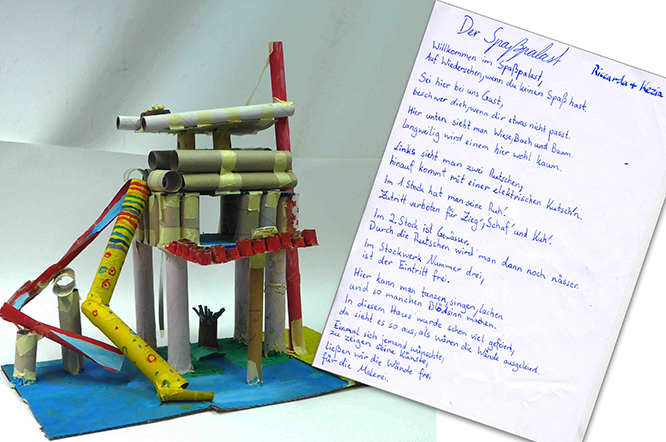 Der Spaßpalast
Riccarda + Kezia
Willkommen im Spaßpalast,
Auf Wiedersehen, wenn du keinen Spaß hast.
Sei hier bei uns Gast,
beschwer dich, wenn dir etwas nicht passt.
Hier unten sieht man Wiese, Bach und Baum.
langweilig wird einem hier wohl kaum.
Links sieht man zwei Rutschen,
hinauf kommt mit einer elektrischen Kutsch'n.
Im 1. Stock hat man seine Ruh'.
Zutritt verboten für Zieg', Schaf' und Kuh'.
Im 2. Stock ist Gewässer.
Durch die Rutschen wird man dann noch nässer.
Im Stockwerk Nummer drei,
ist der Eintritt frei.
Hier kann man tanzen, singen, lachen
und so manchen Blödsinn machen.
In diesem Haus wurde schon viel gefeiert,
da sieht es so aus, als wären die Wände ausgeleiert.
Einmal sich jemand wünschte,
zu zeigen seine Künste,
ließen wir die Wände frei
für die Malerei.